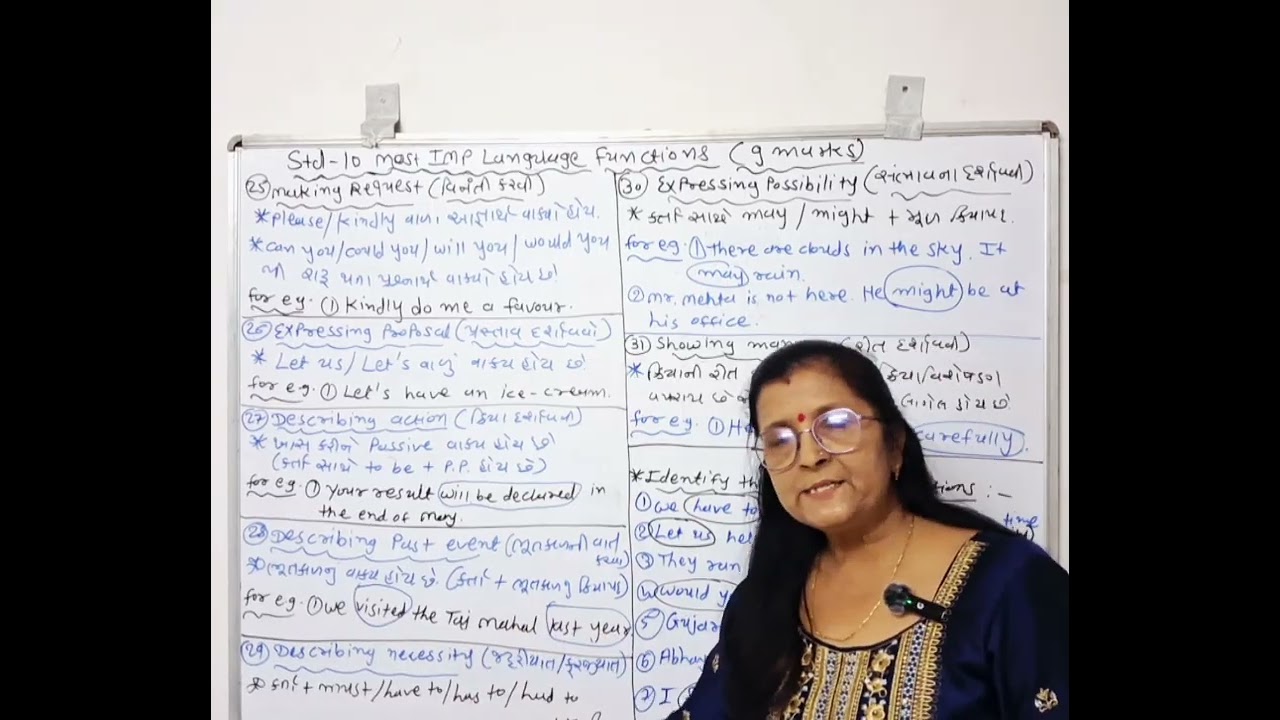 Std-10 most IMP Language functions (9 marks)
(25) Making Request (વિનંતી કરવી)
* please/kindly વાળા આજ્ઞાર્થ વાક્યો હોય.
* can you/could you/will you/would you
થી શરૂ થતા પ્રશ્નાર્થ વાક્યો હોય છે.
for eg. ① Kindly do me a favour.
(26) Expressing Proposal (પ્રસ્તાવ દર્શાવવો)
* Let us/Let's વાળું વાક્ય હોય છે.
for eg. ① Let's have an ice-cream.
(27) Describing action (ક્રિયા દર્શાવવી)
* ખાસ કરીને Passive વાક્ય હોય છે
(કર્તા સાથે to be + P.P. હોય છે)
for eg. ① Your result will be declared in
the end of may.
(28) Describing Past event (ભૂતકાળની વાત કરવી)
* ભૂતકાળનું વાક્ય હોય છે. (કર્તા + ભૂતકાળનું ક્રિયાપદ)
for eg. ① we visited the Taj mahal last year
(29) Describing necessity (જરૂરીયાત/ફરજીયાત)
* કર્તા + must/have to/has to/had to
(30) Expressing Possibility (સંભાવના દર્શાવવી)
* કર્તા સાથે may/might + મૂળ ક્રિયાપદ.
for eg. ① there are clouds in the sky. It
may rain.
② mr. mehta is not here. He might be at
his office.
(31) Showing (રીત દર્શાવવી)
* ક્રિયાની રીત ક્રિયાવિશેષણ
હોય છે.
for eg. ① He carefully.
* Identify
① we have to time
② Let us
③ They run
④ would
⑤
⑥
⑦ I